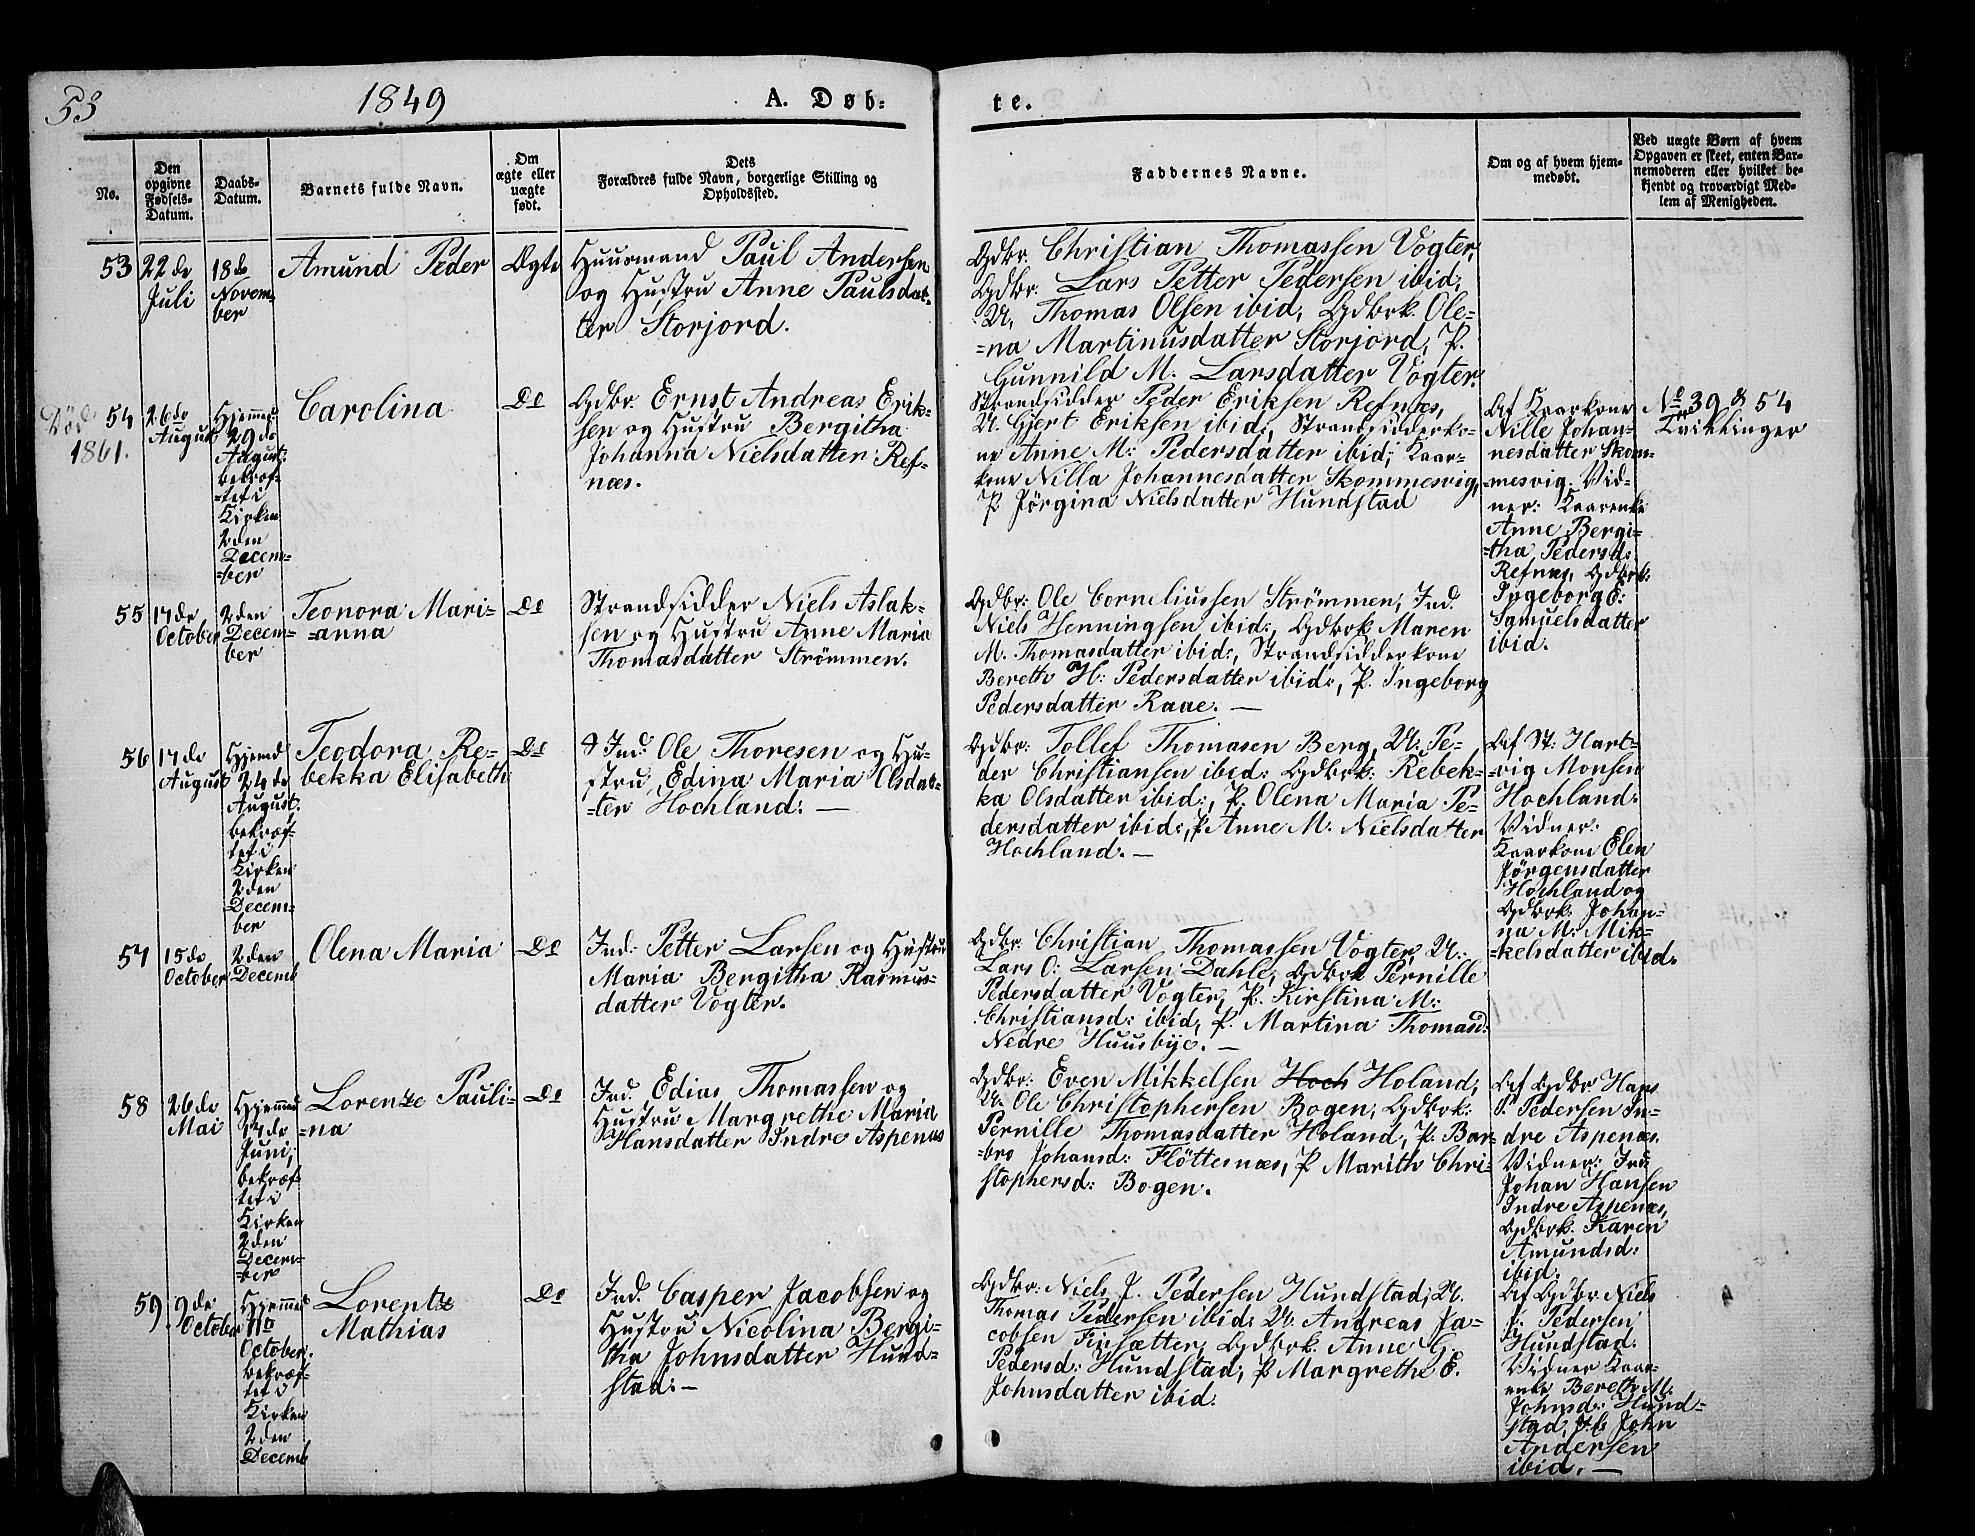 53
1849
A. Døb-
te.
No.
Den
opgivne
Fødsels-
Datum.
Daabs-
Datum.
Barnets fulde Navn.
Om
ægte eller
uægte
født.
Dets
Forældres fulde Navn, borgerlige Stilling og
Opholdssted.
Faddernes Navne.
Om og af hvem hjem-
medøbt.
Ved uægte Børn af hvem
Opgaven er skeet, enten Bar-
nemoderen eller hvilket be-
kjendt og troværdigt Med-
lem af Menigheden.
53
22de
Juli
18de
Novem-
ber
Amund Peder
Ægte
Huusmand Paul Andersen
og Hustru Anne Paulsdat-
ter Storjord.
Gdbr. Christian Thomassen Vogter,
Gdbr: Lars Petter Pedersen ibid:,
U. Thomas Olsen ibid, Gdbrk. Ole-
=na Martinusdatter Storjord, P.
Gunnild M. Larsdatter Vogter.
Død
1861.
54
26de
August
Hjemmed
29de
August:
bekræf-
=tet i
Kirken
2den
Decem-
=ber
Carolina
Do
Gdbr. Ernst Andreas Erik-
sen og Hustru Bergitha
Johanna Nielsdatter Ref-
næs.
Strandsidder Peder Eriksen Refnæs,
U. Gjert Eriksen ibid:, Strandsidderko-
ne Anne M: Pedersdatter ibid; Kaar-
kone Nilla Johannesdatter Skommesvig,
P. Jörgina Nielsdatter Hundstad
Af Kaarkone
Nille Johan-
nesdatter Skom-
=mesvig. Vid-
ner: Kaarenke
Anne Bergi-
=tha Pedersd:
Refnæs, Gdbrk:
Ingeborg E:
Samuelsdatter
ibid.
No 39 & 54
Tvillinger
55
17de
October
2den
Decem-
ber
Teonora Mari-
=anna
Do
Strandsidder Niels Aslak-
sen og Hustru Anne Maria
Thomasdatter Strömmen.
Gdbr: Ole Corneliussen Strömmen, Ind.
Niels Henningsen ibid:, Gdbrk Maren
M. Thomasdatter ibid:, Strandsidderkone
Bereth H: Pedersdatter ibid:, P. Ingeborg
Pedersdatter Raae. —
56
17de
August
Hjemd
24de
August.
bekræf-
tet i
Kirken
2den
Decem-
ber
Teodora Re-
bekka Elisabeth
Do
Ind: Ole Thoresen og Hu-
stru, Edina Maria Olsdat-
=ter Hochland: —
Gdbr: Tollef Thomasen Berg, U: Pe-
der Christiansen ibid: Gdbrk: Rebek-
ka Olsdatter ibid:, P. Olena Maria Pe-
dersdatter ibid:, P. Anne M: Nielsdatter
Hochland. —
Af St: Hart-
=vig Monsen
Hochland.
Vidner:
Kaarkone Elen
Jörgensdatter
Hochland og
Gdbrk: Johan-
na M: Mik-
=kelsdatter ibid.
57
15de
October
2den
Decemb
Olena Maria
Do
Ind: Petter Larsen og Hustru
Maria Bergitha Rasmus-
datter Vogter.
Gdbr: Christian Thomassen Vogter, U.
Lars O: Larsen Dahle, Gdbrk Pernille
Pedersdatter Vogter, P. Kirstina M:
Christiansd: ibid, P. Martina Thomasd:
Nedre Huusbye. —
58
26de
Mai
Hjemmed
7de
Juni,
bekræf-
tet i
Kirken
2den
Decem-
=ber
Lorentze Pauli-
=na
Do
Ind. Edias Thomassen og
Hustru Margrethe Maria
Hansdatter Indre Aspenæs
Gdbr: Even Mikkelsen Hoch Holand,
U. Ole Christophersen Bogen, Gdbrk:
Pernille Thomasdatter Holand, P. Bar-
=bro Johansd: Flöttesnæs, P Marith Chri-
stophersd: Bogen.
Af Gdbr Hans
P. Pedersen In-
dre Aspenæs.
Vidner: Ind:
Johan Hansen
Indre Aspenæs,
Gdbrk. Karen
Amundsd:
ibid.
59
9de
October
Hjemmed
October.
bekræf-
tet i
Kirken
2den
Decemb
Lorentz
Mathias
Do
Ind. Casper Jacobsen og
Hustru Nicolina Bergi-
tha Johnsdatter Hund-
stad: —
Gdbr: Niels J. Pedersen Hundstad, U.
Thomas Pedersen ibid: U. Andreas Ja-
cobsen Firsætter, Gdbrk. Anne G.
Pedersd: Hundstad, P Margrethe E.
Johnsdatter ibid:
Af Gdbr Niels
J. Pedersen
Hundstad.
Vidner Kaar-
enke Bereth M:
Johnsd: Hund-
stad, John
Andersen
ibid. —